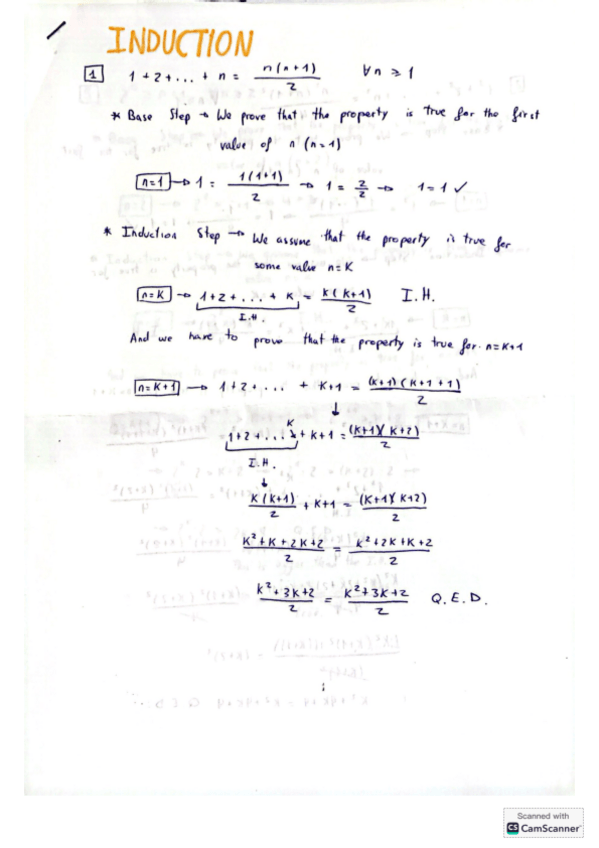 INDUCTION
1 1+2+...+ n = n(n+1)/2 ∀n ≥ 1
* Base Step → We prove that the property is true for the first
value of n (n=1)
n=1 → 1 = 1(1+1)/2 → 1 = 2/2 → 1=1 ✓
* Induction Step → We assume that the property is true for
some value n=K
n=K → 1+2+...+ K = K(K+1)/2 I.H.
I.H.
And we have to prove that the property is true for n=K+1
n=K+1 → 1+2+... + K+1 = (K+1)(K+1+1)/2
↓
1+2+... K + K+1 = (K+1)(K+2)/2
I.H.
↓
K(K+1)/2 + K+1 = (K+1)(K+2)/2
K²+K+2K+2/2 = K²+2K+K+2/2
K²+3K+2/2 = K²+3K+2/2 Q.E.D.
Scanned with
CS CamScanner